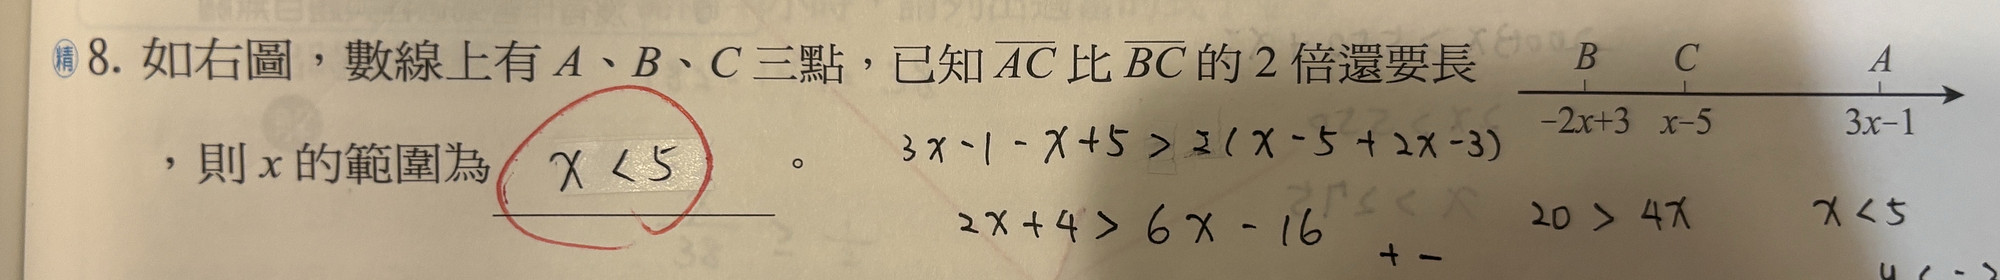 精 8. 如右圖，數線上有 A、B、C 三點，已知 AC 比 BC 的 2 倍還要長
B C A
-2x+3 x-5 3x-1
，則 x 的範圍為 x < 5 。
3x-1-x+5 > 2(x-5+2x-3)
2x+4 > 6x-16 20 > 4x x < 5
+ -